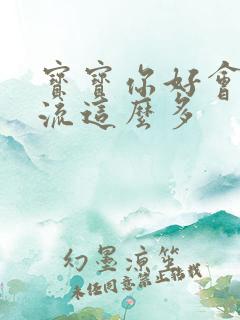 寶寶你好會
流這麼多
幻墨涼笙
未経同意禁止搭我